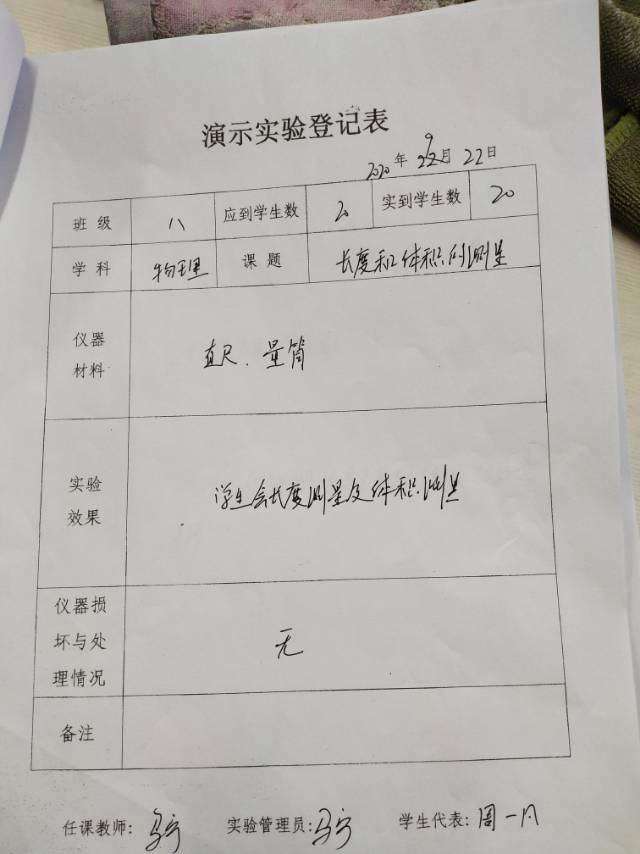 演示实验登记表
2020年 9月 22日
班级 八 应到学生数 20 实到学生数 20
学科 物理 课题 长度和体积的测量
仪器
材料
直尺、量筒
实验
效果
学生会长度测量及体积测量
仪器损
坏与处
理情况
无
备注
任课教师: 实验管理员: 学生代表: 周一凡